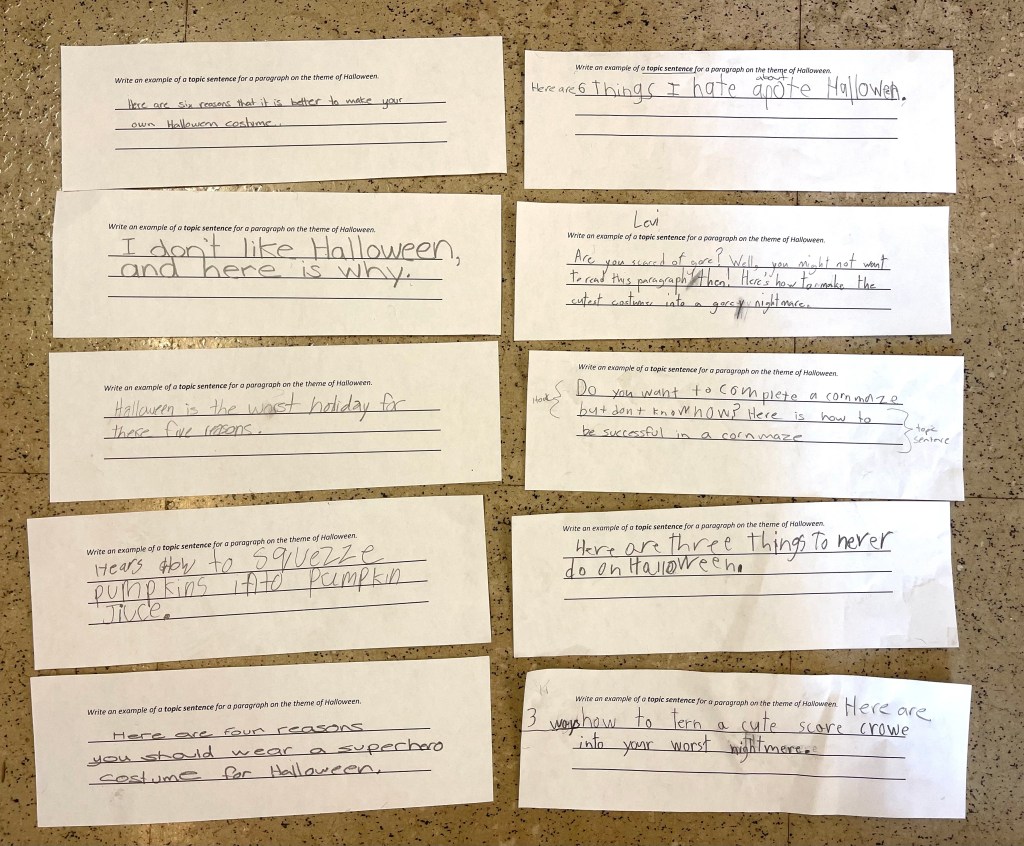 Write an example of a topic sentence for a paragraph on the theme of Halloween.
Here are six reasons that it is better to make your
own Halloween costume.
Write an example of a topic sentence for a paragraph on the theme of Halloween.
about
Here are 6 things I hate apote Hallowen.
Write an example of a topic sentence for a paragraph on the theme of Halloween.
I don't like Halloween,
and here is why.
Levi
Write an example of a topic sentence for a paragraph on the theme of Halloween.
Are you scared of gore? Well, you might not want
to read this paragraph then! Here's how to make the
cutest costume into a gorey nightmare.
Write an example of a topic sentence for a paragraph on the theme of Halloween.
Halloween is the worst holiday for
these five reasons.
Write an example of a topic sentence for a paragraph on the theme of Halloween.
Hook
Do you want to complete a cornmaze
but dont know how? Here is how to
be successful in a cornmaze
topic
sentence
Write an example of a topic sentence for a paragraph on the theme of Halloween.
Hears how to squezze
pumpkins into pumpkin
Jiuce.
Write an example of a topic sentence for a paragraph on the theme of Halloween.
Here are three things To never
do on Halloween.
Write an example of a topic sentence for a paragraph on the theme of Halloween.
Here are four reasons
you should wear a superhero
costume for Halloween.
Write an example of a topic sentence for a paragraph on the theme of Halloween. Here are
3 ways how to tern a cute score crowe
into your worst nightmere.